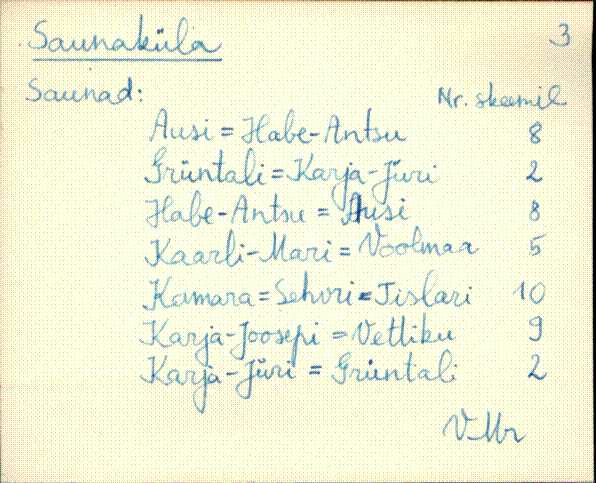 Saunaküla 3
Saunad: Nr. skeemil
Ausi = Habe-Antsu 8
Grüntali = Karja-Jüri 2
Habe-Antsu = Ausi 8
Kaarli-Mari = Voolmaa 5
Kamara = Sehvri = Tislari 10
Karja-Joosepi = Vetliku 9
Karja-Jüri = Grüntali 2
V.Mr